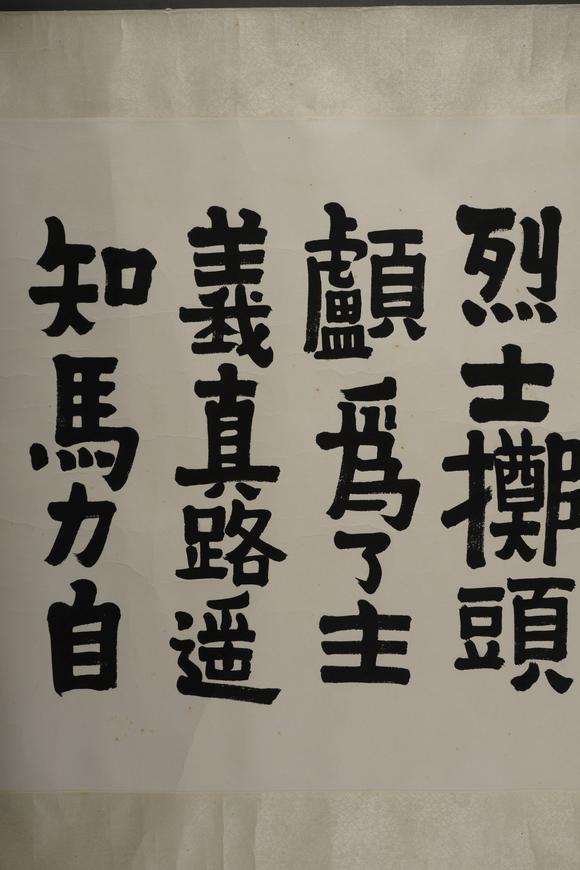 烈士擲頭
顱爲了主
義真路遥
知馬力自